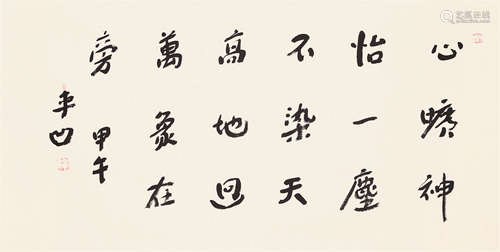 心曠神
怡一塵
不染天
高地迥
萬象在
旁
甲午
平凹